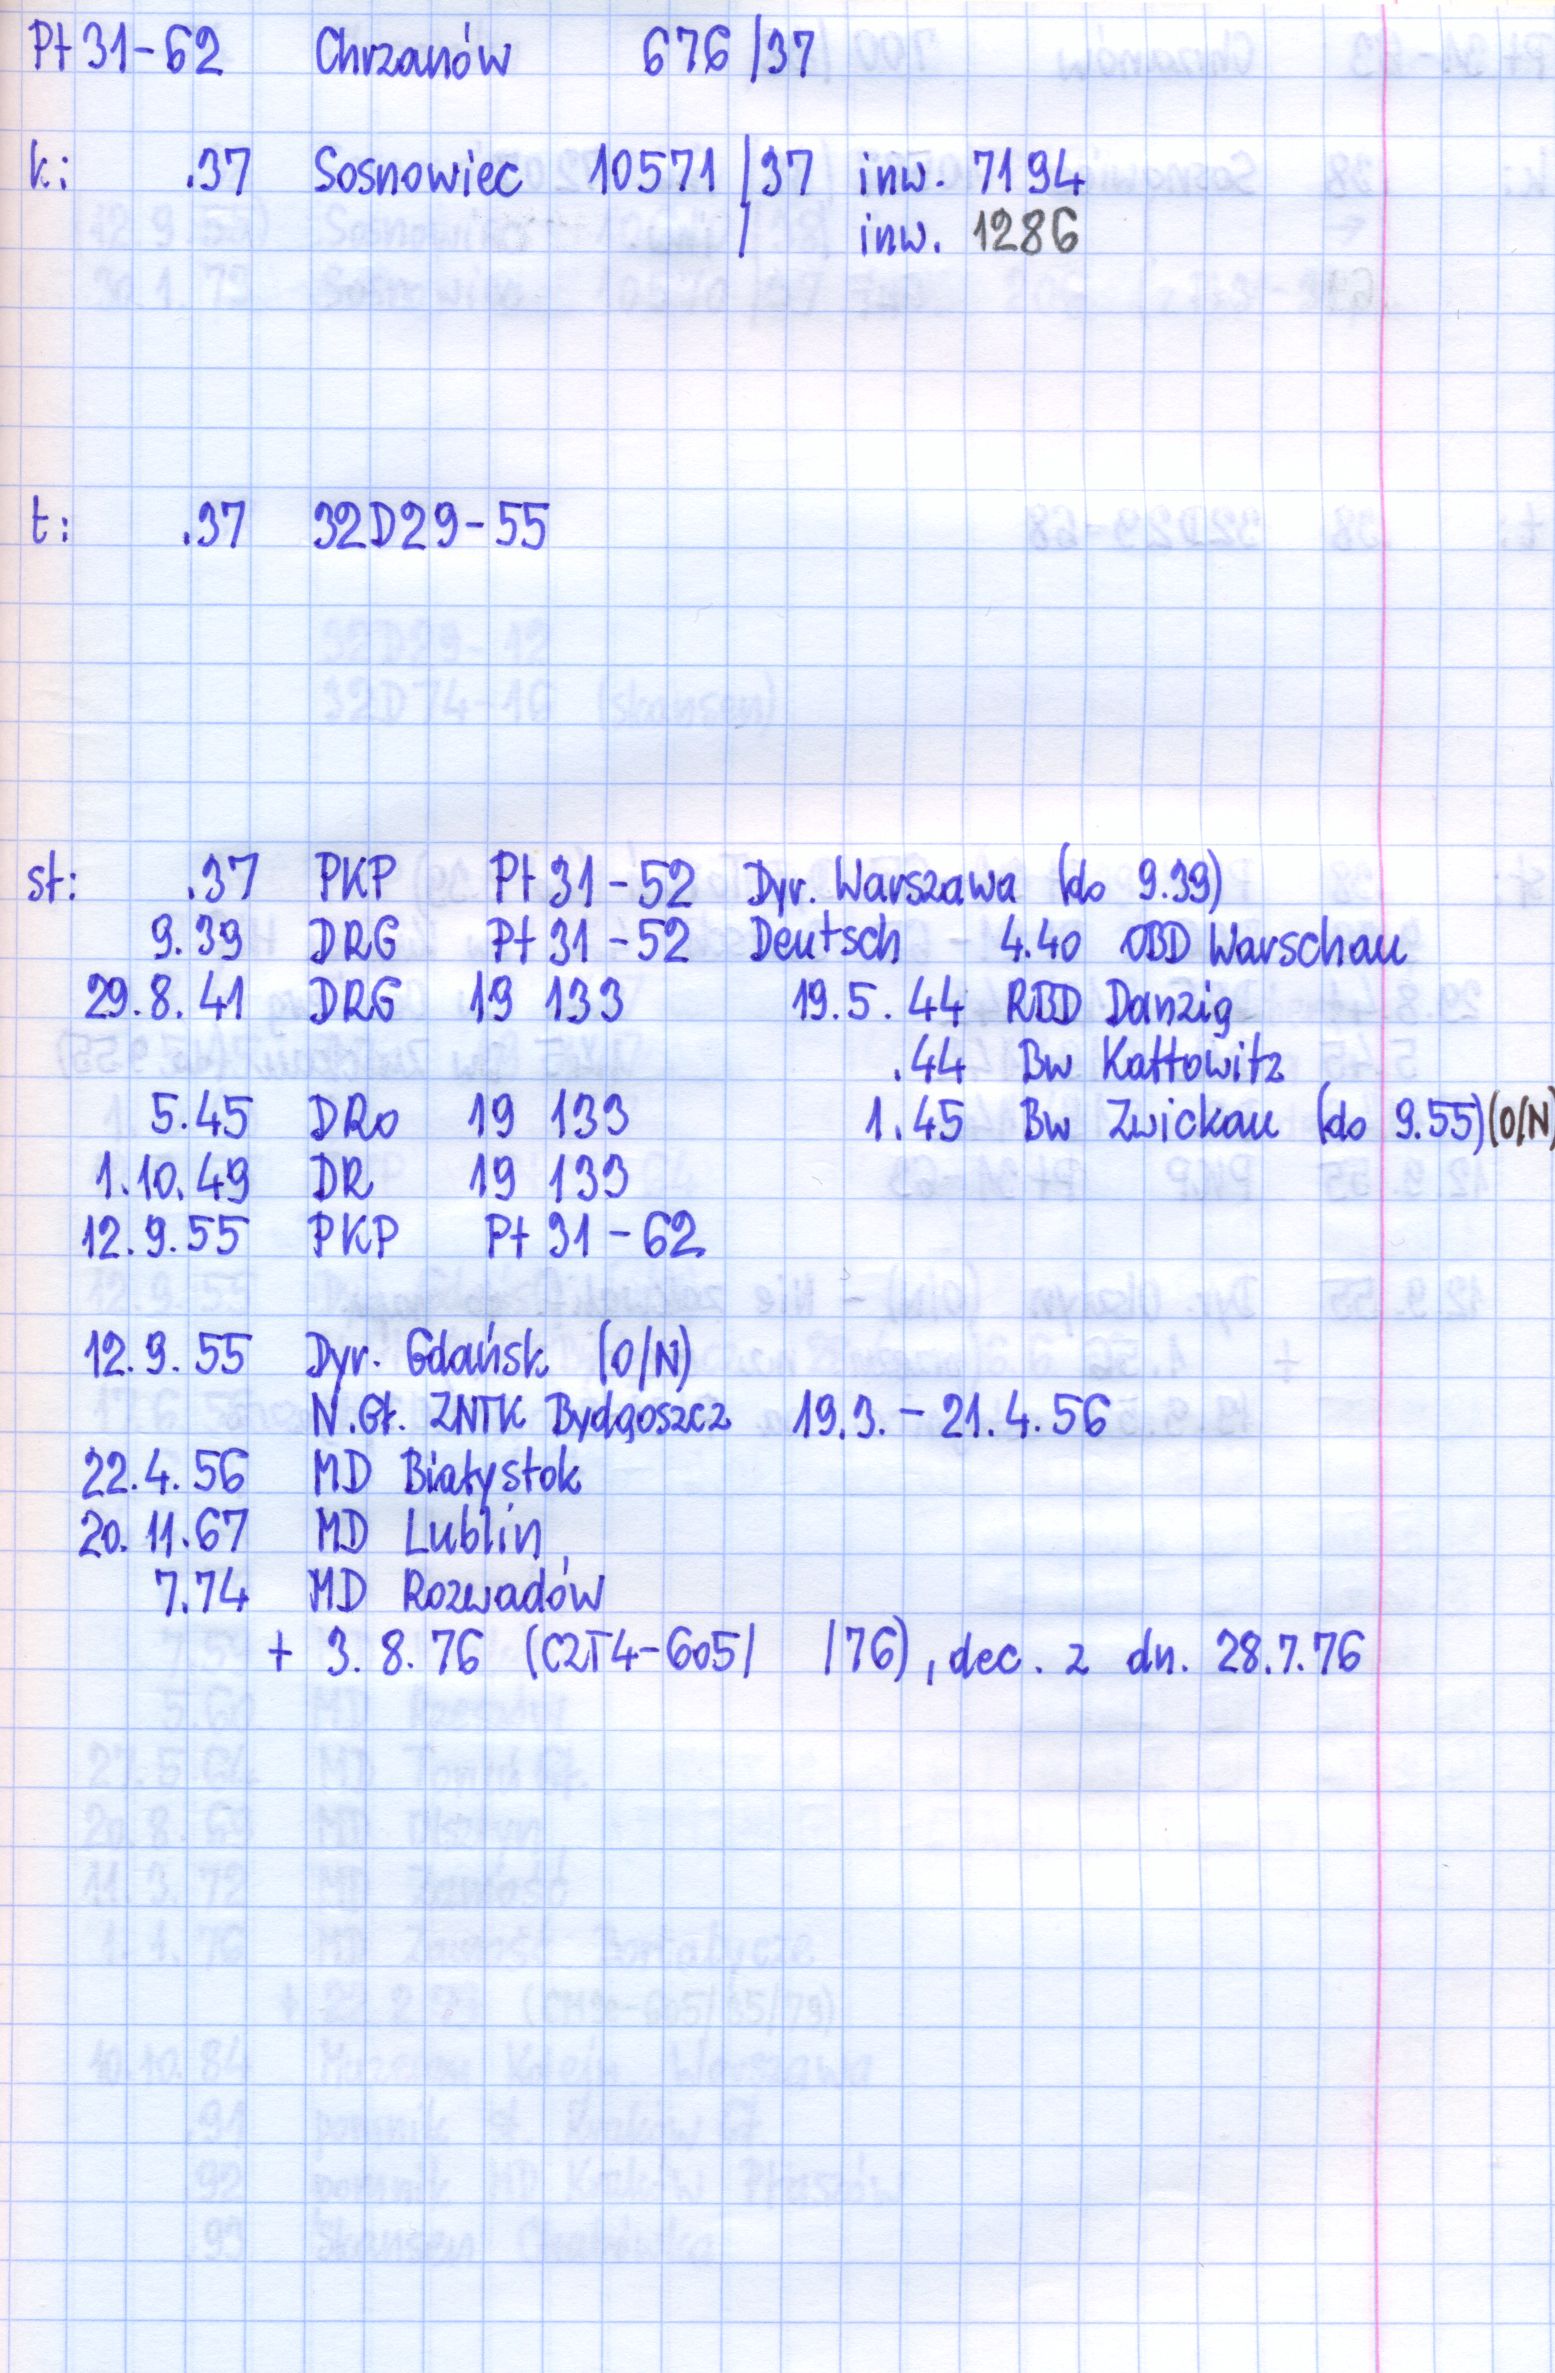 Pt 31-62 Chrzanów 676/37
k: .37 Sosnowiec 10571/37 inw. 7194
/ inw. 1286
t: .37 32D29-55
st: .37 PKP Pt 31-52 Dyr. Warszawa (do 9.39)
9.39 DRG Pt 31-52 Deutsch 4.40 OBD Warschau
29.8.41 DRG 19 133 19.5.44 RBD Danzig
.44 Bw Kattowitz
5.45 DRo 19 133 1.45 Bw Zwickau (do 9.55)(O/N)
1.10.49 DR 19 133
12.9.55 PKP Pt 31-62
12.9.55 Dyr. Gdańsk (O/N)
N.Gł. ZNTK Bydgoszcz 19.3.-21.4.56
22.4.56 MD Białystok
20.11.67 MD Lublin
7.74 MD Rozwadów
+ 3.8.76 (CZT4-605/ /76), dec. z dn. 28.7.76